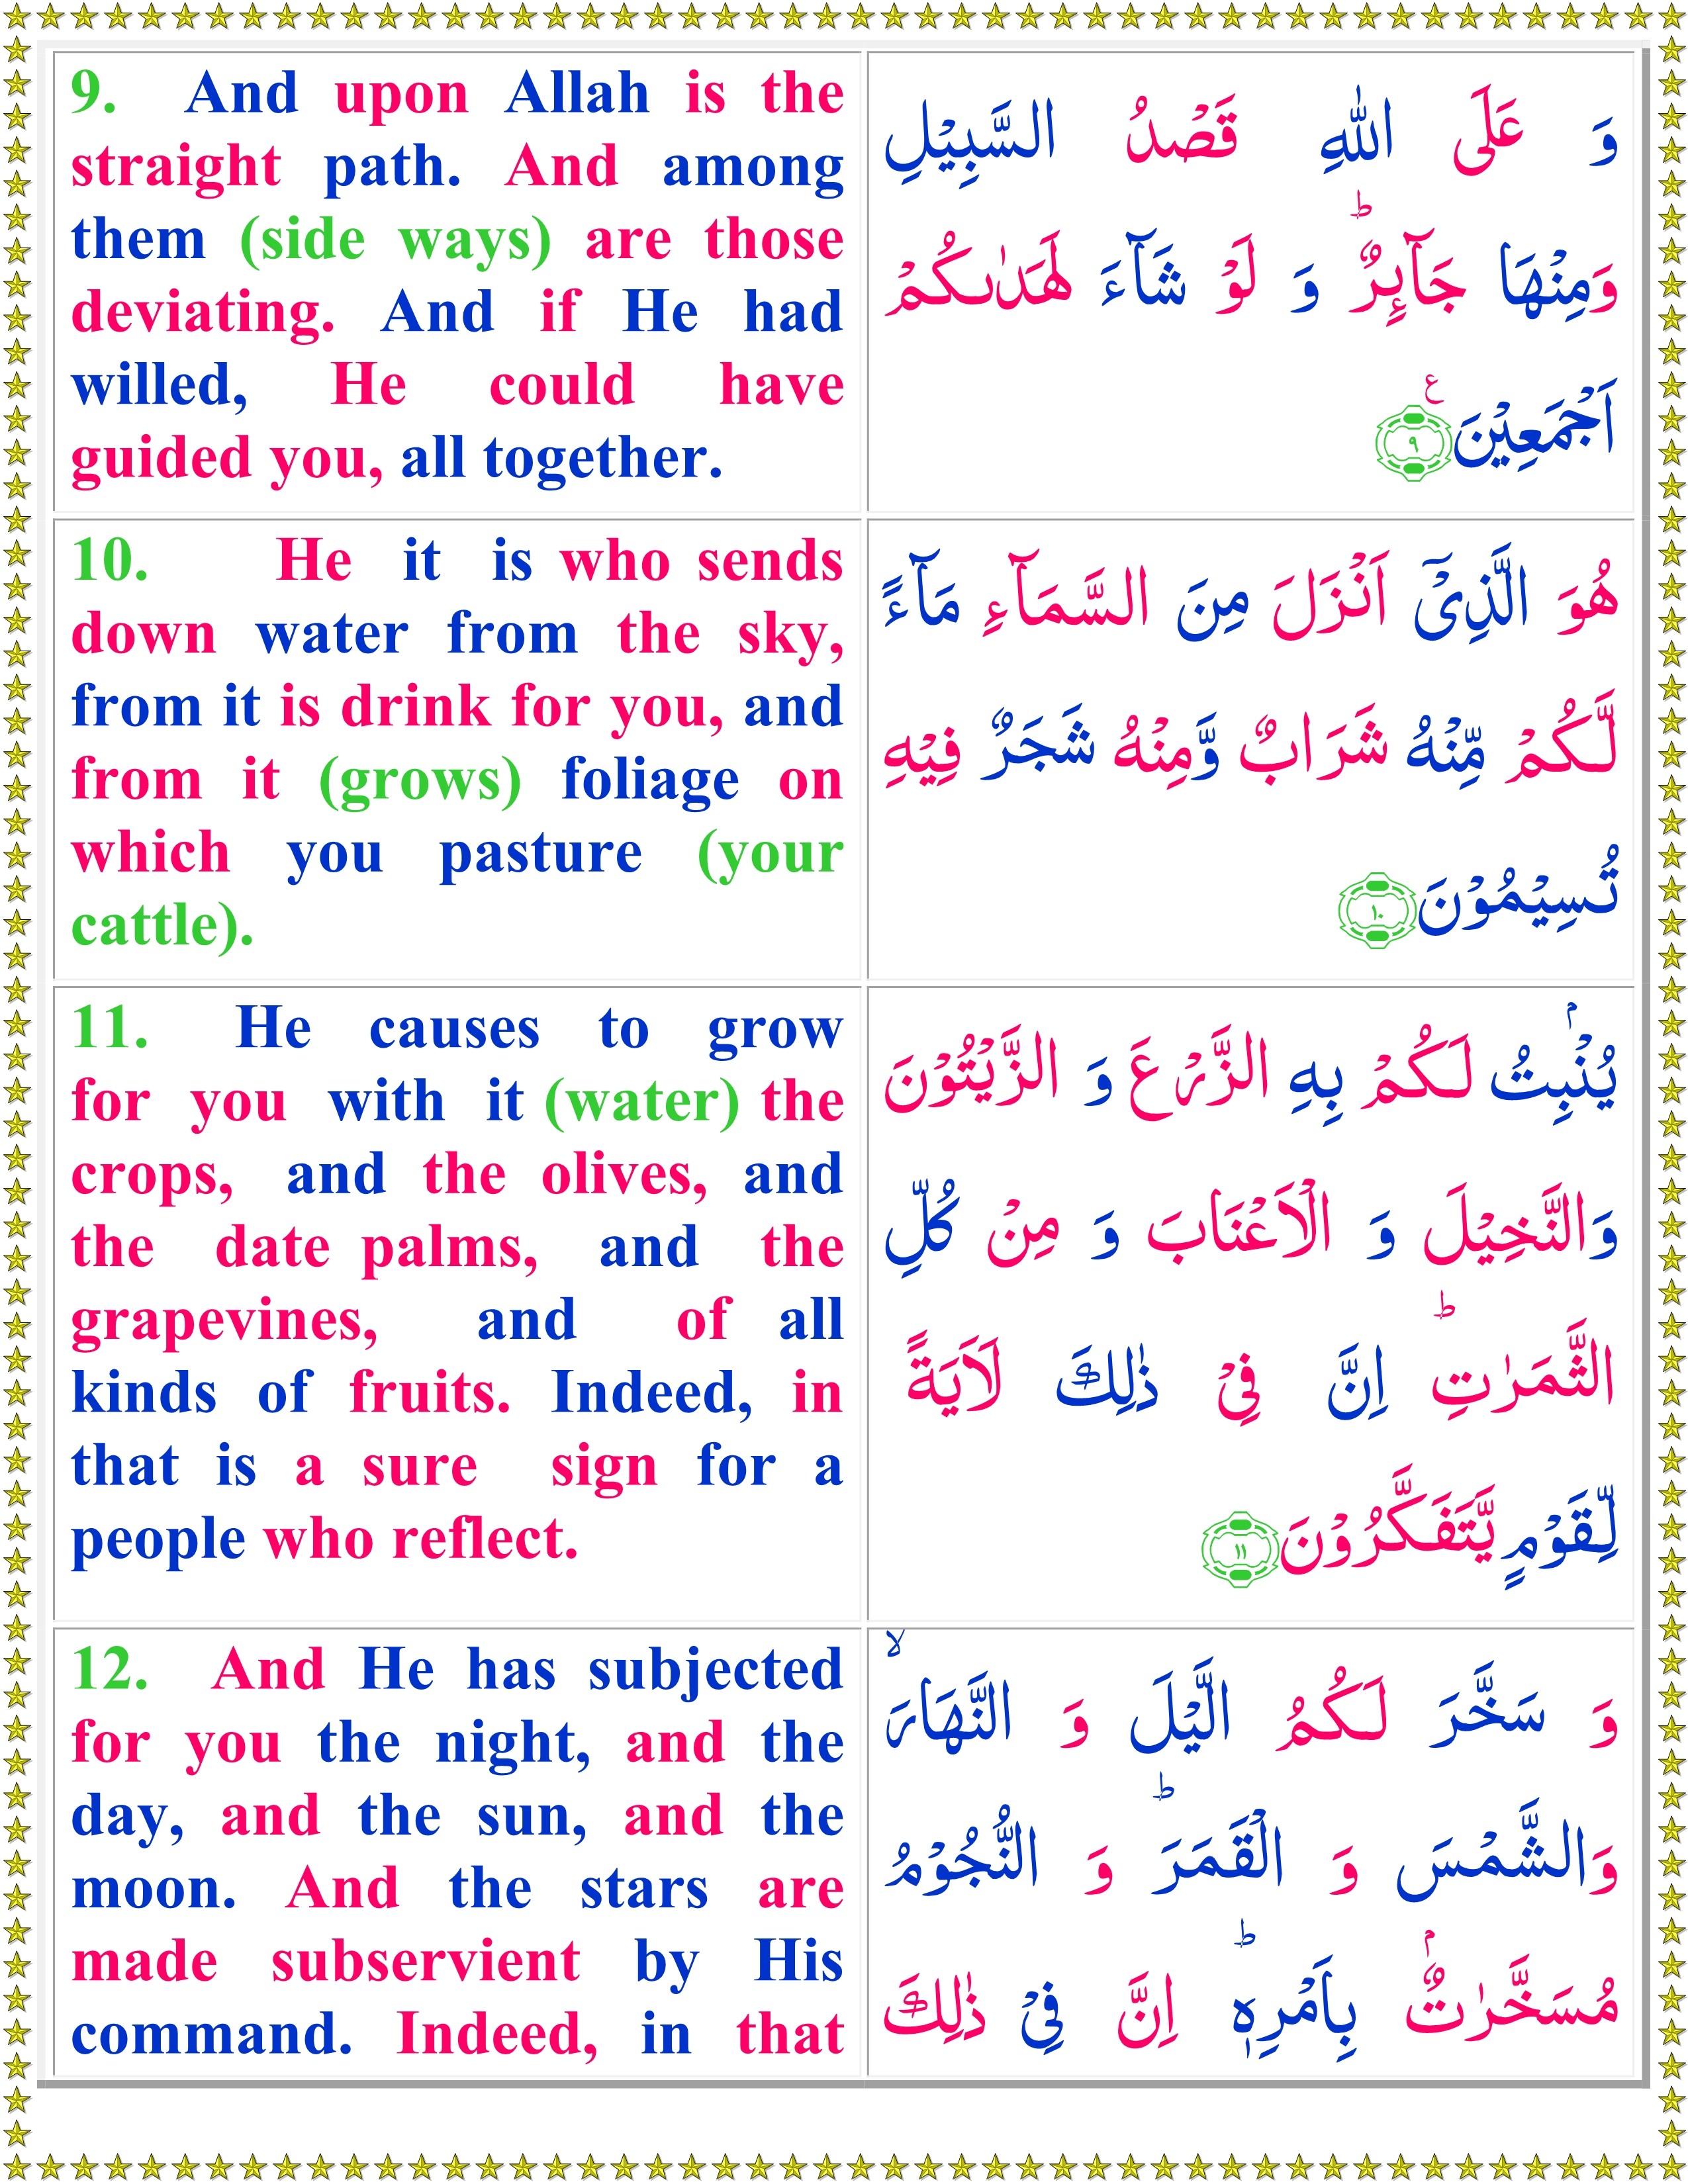 9. And upon Allah is the
straight path. And among
them (side ways) are those
deviating. And if He had
willed, He could have
guided you, all together.
وَ عَلَى اللّٰهِ قَصْدُ السَّبِيْلِ
وَمِنْهَا جَآىِٕرٌ ؕ وَ لَوْ شَآءَ لَهَدٰٮكُمْ
اَجْمَعِيْنَ ۧ ﴿۹﴾
10. He it is who sends
down water from the sky,
from it is drink for you, and
from it (grows) foliage on
which you pasture (your
cattle).
هُوَ الَّذِىْۤ اَنْزَلَ مِنَ السَّمَآءِ مَآءً
لَّـكُمْ مِّنْهُ شَرَابٌ وَّمِنْهُ شَجَرٌ فِيْهِ
تُسِيْمُوْنَ ﴿۱۰﴾
11. He causes to grow
for you with it (water) the
crops, and the olives, and
the date palms, and the
grapevines, and of all
kinds of fruits. Indeed, in
that is a sure sign for a
people who reflect.
يُنْۢبِتُ لَـكُمْ بِهِ الزَّرْعَ وَ الزَّيْتُوْنَ
وَالنَّخِيْلَ وَ الْاَعْنَابَ وَ مِنْ كُلِّ
الثَّمَرٰتِ ؕ اِنَّ فِىْ ذٰلِكَ لَاٰيَةً
لِّقَوْمٍ يَّتَفَكَّرُوْنَ ﴿۱۱﴾
12. And He has subjected
for you the night, and the
day, and the sun, and the
moon. And the stars are
made subservient by His
command. Indeed, in that
وَ سَخَّرَ لَـكُمُ الَّيْلَ وَ النَّهَارَ ۙ
وَالشَّمْسَ وَ الْقَمَرَ ؕ وَ النُّجُوْمُ
مُسَخَّرٰتٌۢ بِاَمْرِهٖ ؕ اِنَّ فِىْ ذٰلِكَ